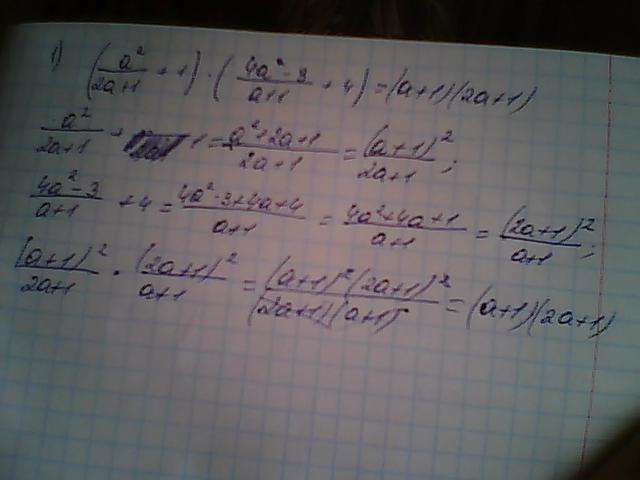 1) (a²/(2a+1) + 1) · ((4a²-3)/(a+1) + 4) = (a+1)(2a+1)
a²/(2a+1) + 1 = (a²+2a+1)/(2a+1) = (a+1)²/(2a+1);
(4a²-3)/(a+1) + 4 = (4a²-3+4a+4)/(a+1) = (4a²+4a+1)/(a+1) = (2a+1)²/(a+1);
(a+1)²/(2a+1) · (2a+1)²/(a+1) = (a+1)²(2a+1)²/((2a+1)(a+1)) = (a+1)(2a+1)